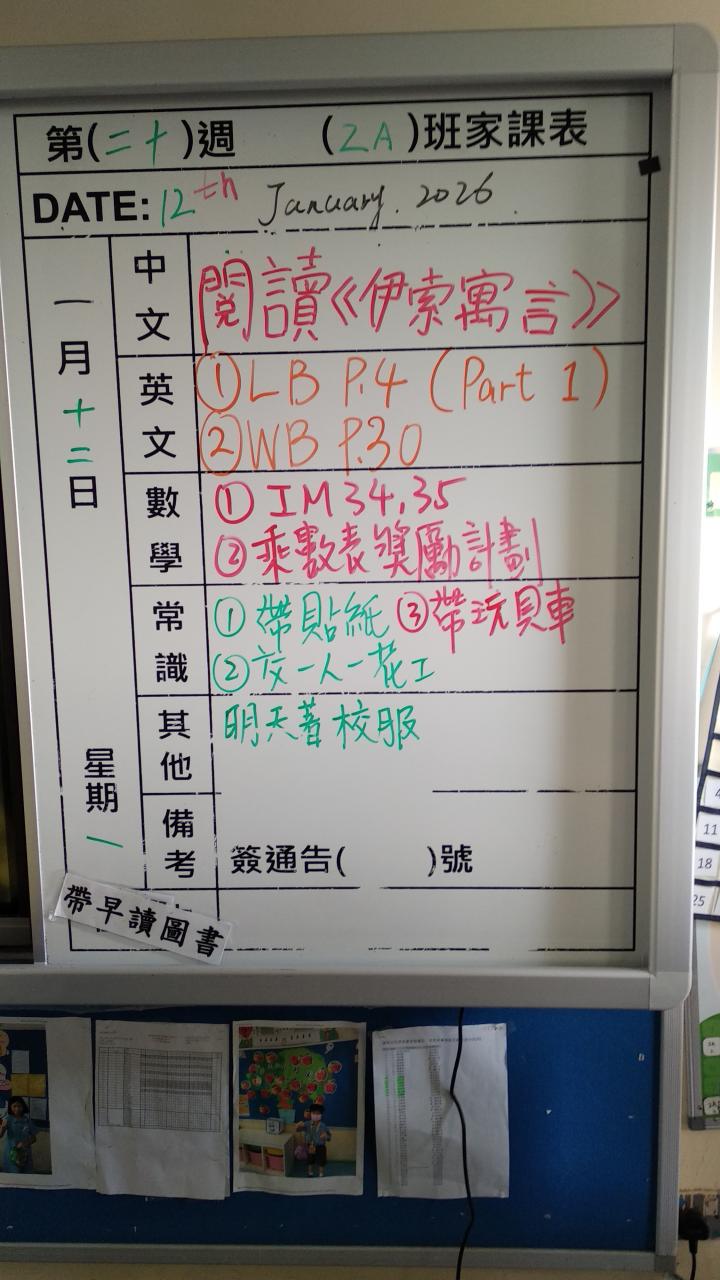 第(二十)週 (2A)班家課表
DATE: 12th January. 2026
一月十二日
星期一
中文
閱讀《伊索寓言》
英文
①LB P.4 (Part 1)
②WB P.30
數學
①IM 34,35
②乘數表獎勵計劃
常識
①帶貼紙 ③帶玩具車
②交一人一花工
其他
明天着校服
備考
簽通告( )號
帶早讀圖書
4
11
18
25